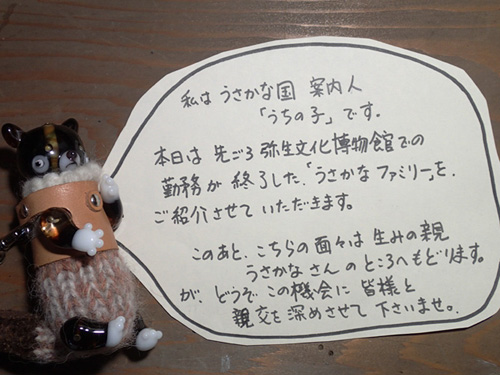 私は うさかな国 案内人
「うちの子」です。
本日は 先ごろ 弥生文化博物館での
勤務が 終了した、「うさかな ファミリー」を、
ご紹介させて いただきます。
このあと、こちらの面々は 生みの親
うさかなさん のところへもどります。
が、どうぞ この機会に 皆様と
親交を深めさせて 下さいませ。